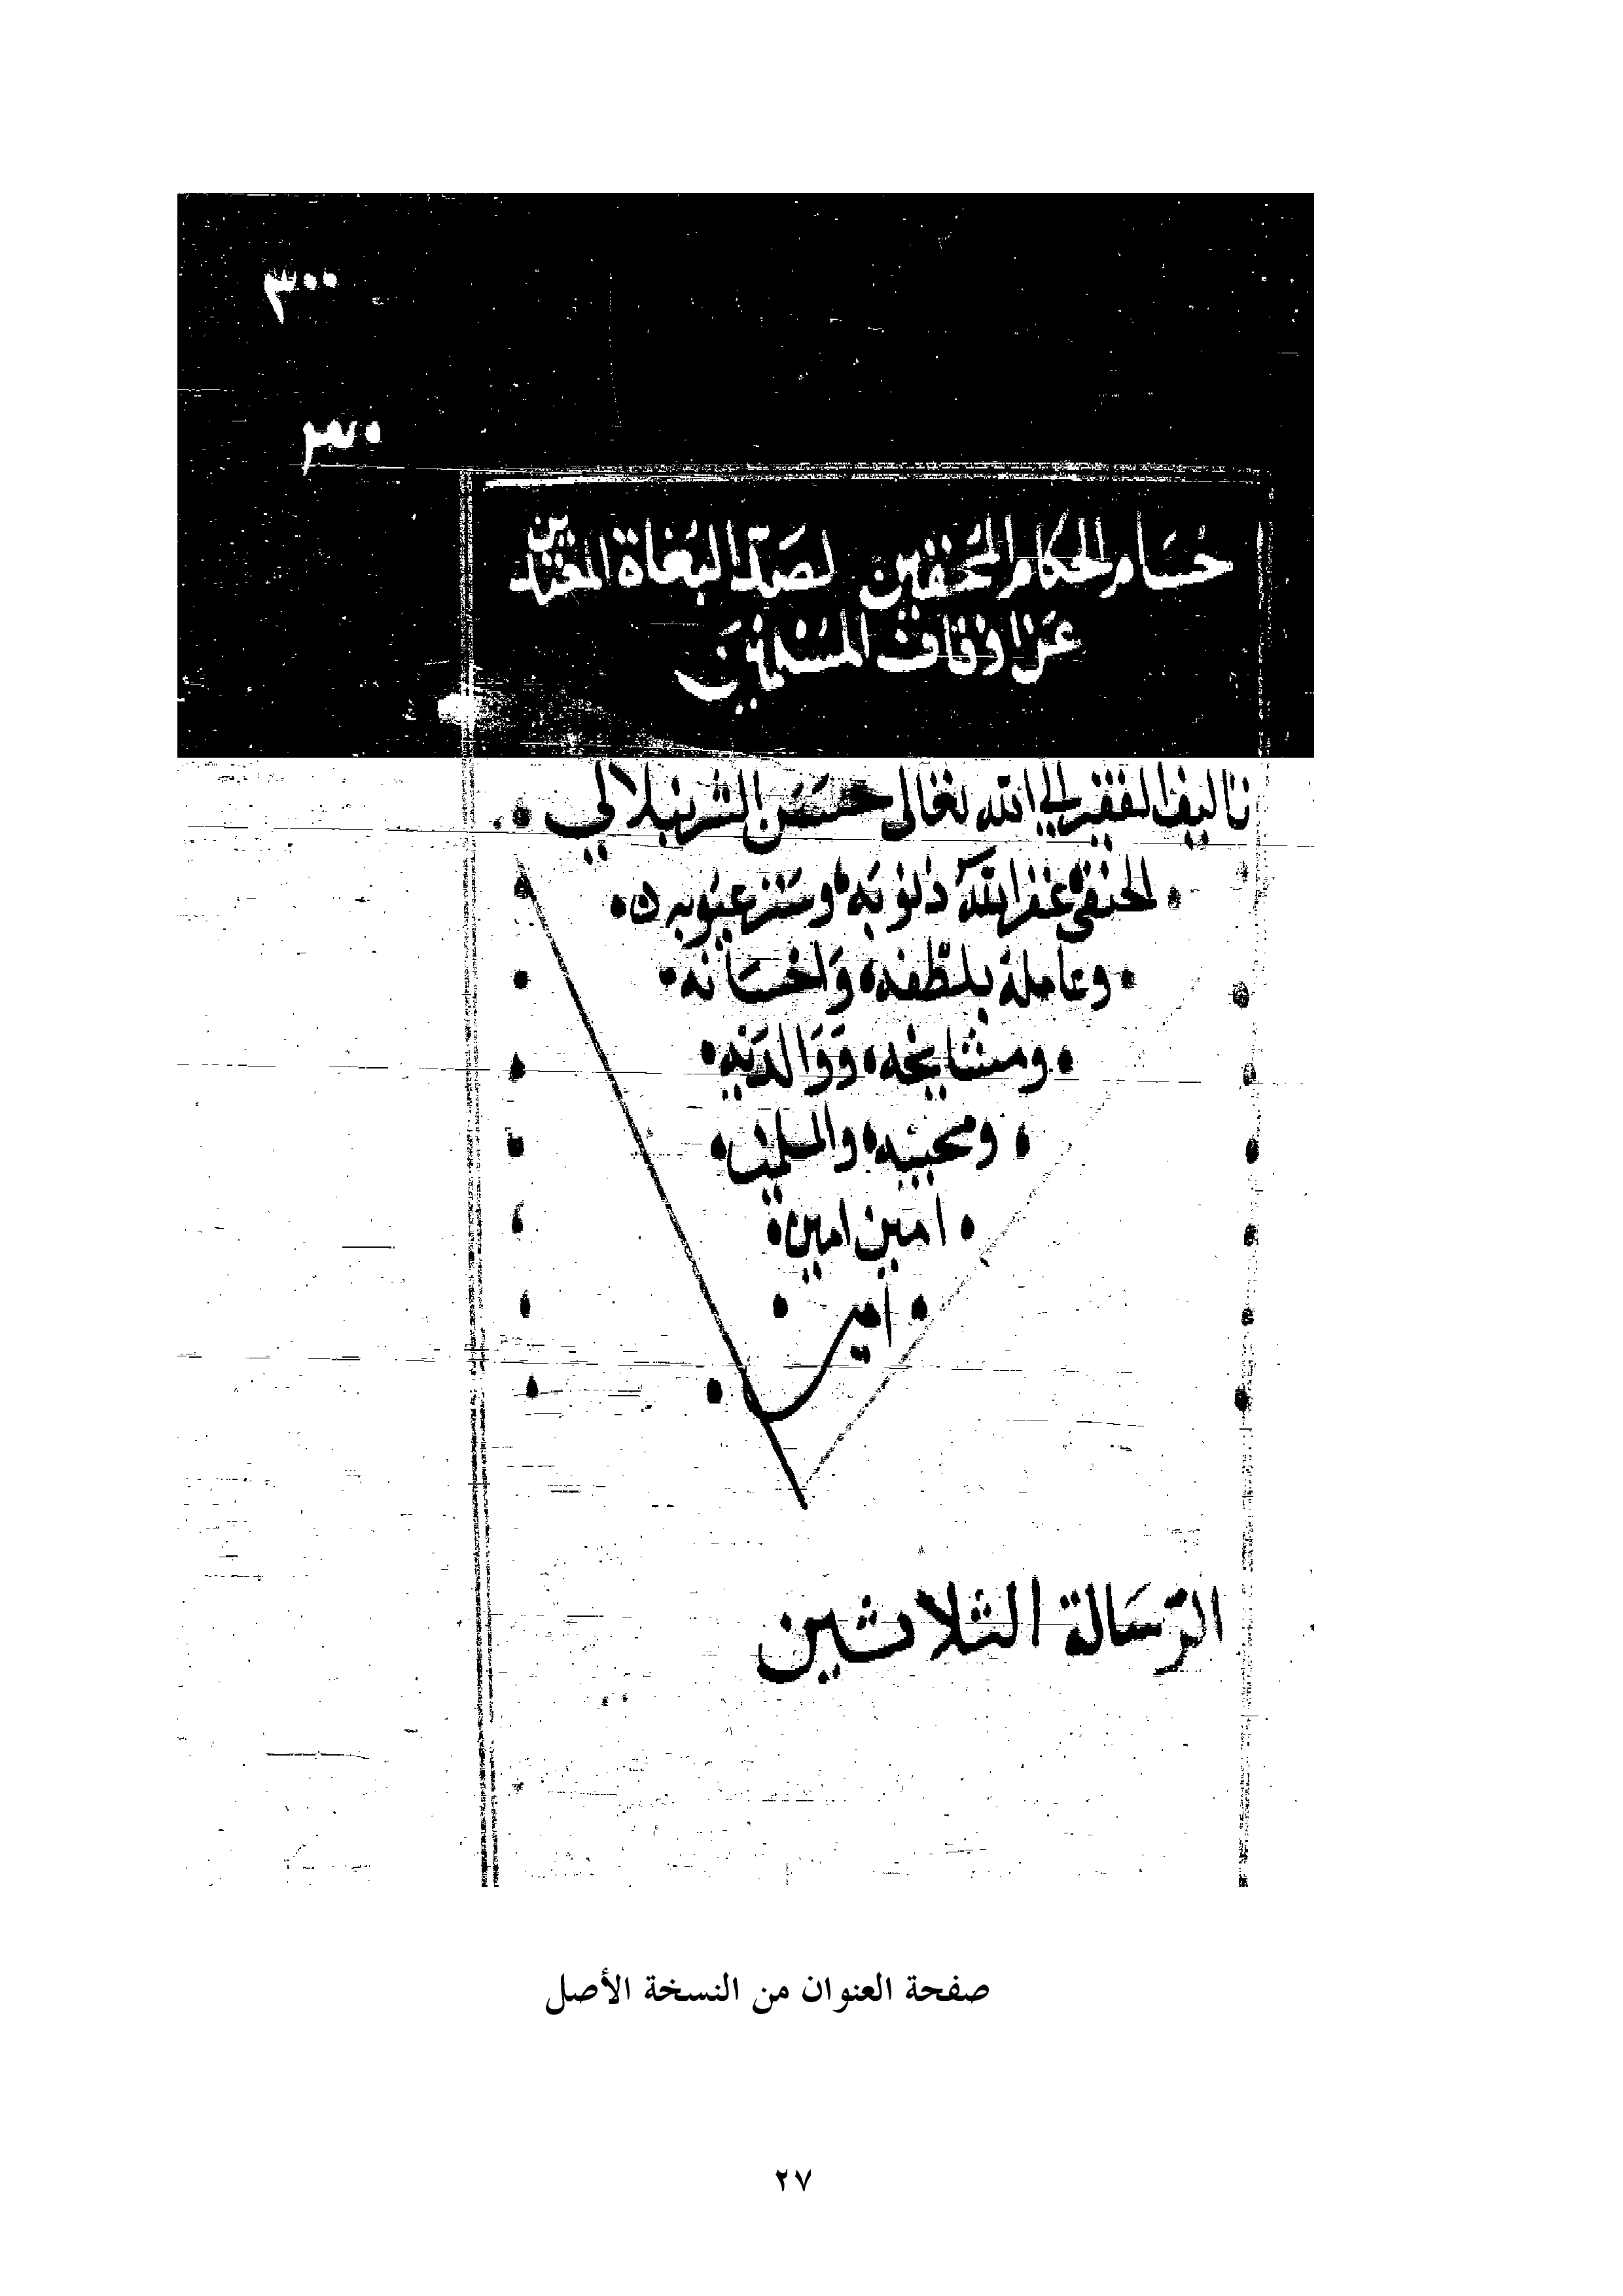 ٣٠٠
٣٠
حسام الحكام المحقين لصد البغاة المعتدين
عن اوقاف المسلمين
تاليف الفقير الى الله تعالى حسن الشرنبلالي
الحنفي غفر الله ذنوبه وستر عيوبه
وعامله بلطفه واحسانه
ومشايخه ووالديه
ومحبيه والمسلمين
امين امين
امين
الرسالة الثلاثين
صفحة العنوان من النسخة الأصل
٢٧